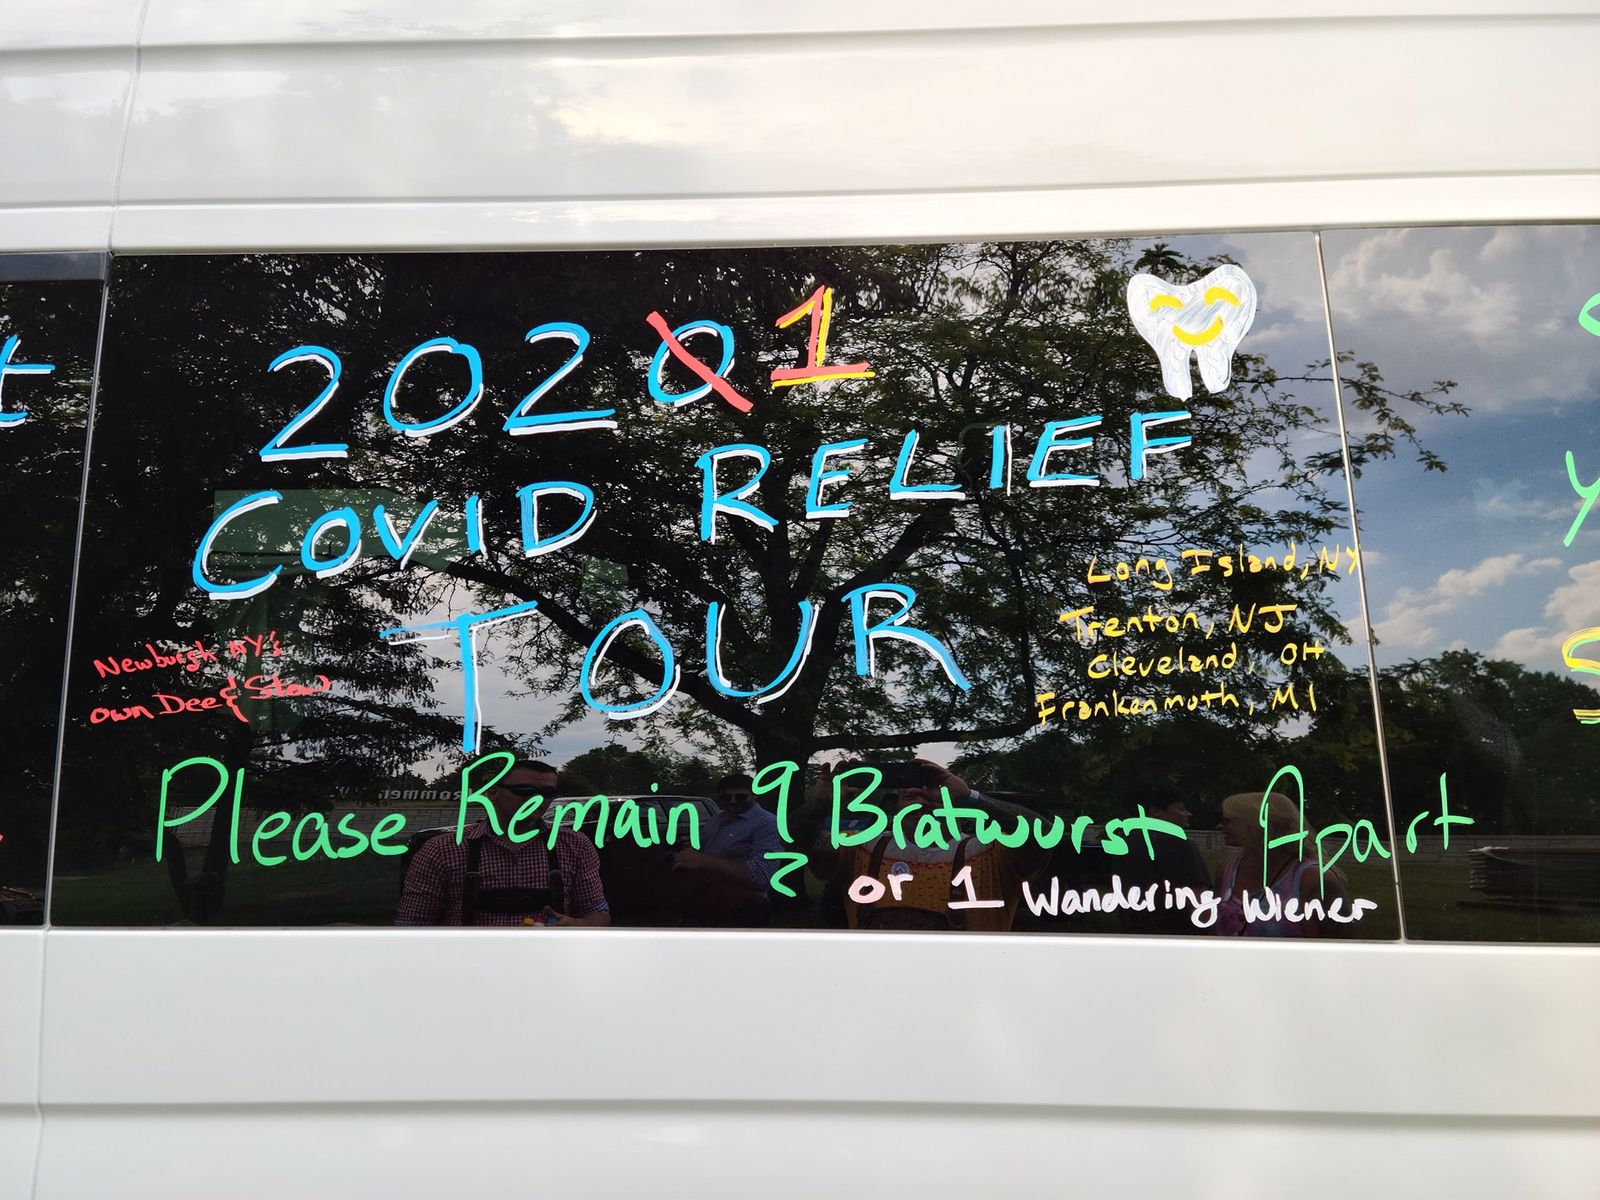 2020 1
COVID RELIEF
TOUR
Long Island, NY
Trenton, NJ
Cleveland, OH
Frankenmuth, MI
Newburgh NY's
own Dee & Stew
Please Remain 9 Bratwurst Apart
or 1 Wandering Wiener